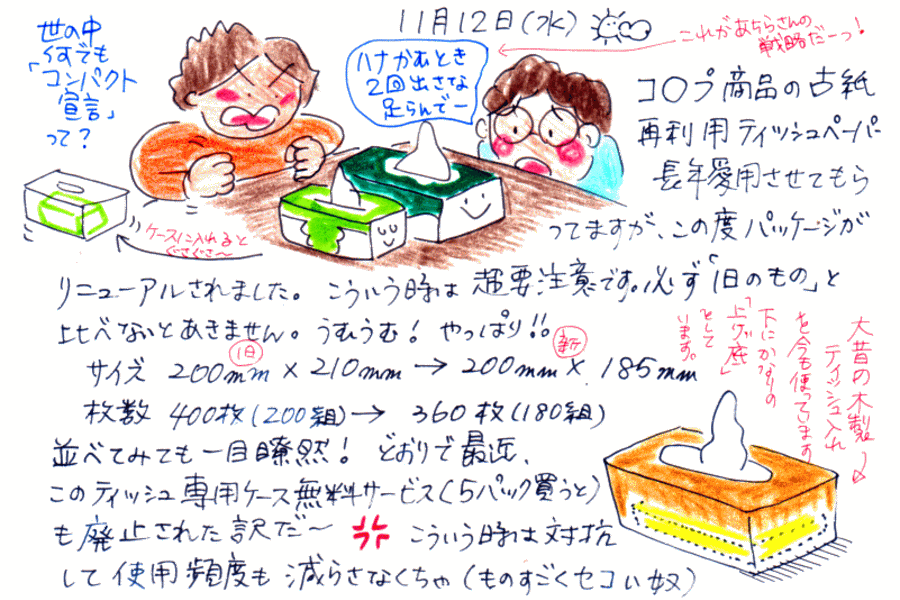 11月12日(水)
世の中
何でも
「コンパクト
宣言」
って？
ハナかむとき
2回出さな
足らんでー
これがあちらさんの
戦略だーっ！
コ〇プ商品の古紙
再利用ティッシュペーパー
長年愛用させてもら
ってますが、この度パッケージが
ケースに入れると
ぐさぐさ〜
リニューアルされました。こういう時は超要注意です。必ず「旧のもの」と
比べないとあきません。うむうむ！やっぱり!!
旧
新
サイズ 200mm×210mm→200mm×185mm
枚数 400枚(200組)→360枚(180組)
並べてみても一目瞭然！どおりで最近、
このティッシュ専用ケース無料サービス(5パック買うと)
も廃止された訳だ〜 こういう時は対抗
して使用頻度も減らさなくちゃ(ものすごくセコい奴)
大昔の木製
ティッシュ入れ
を今も使っています
下にかなりの
「上ゲ底」
として
います。